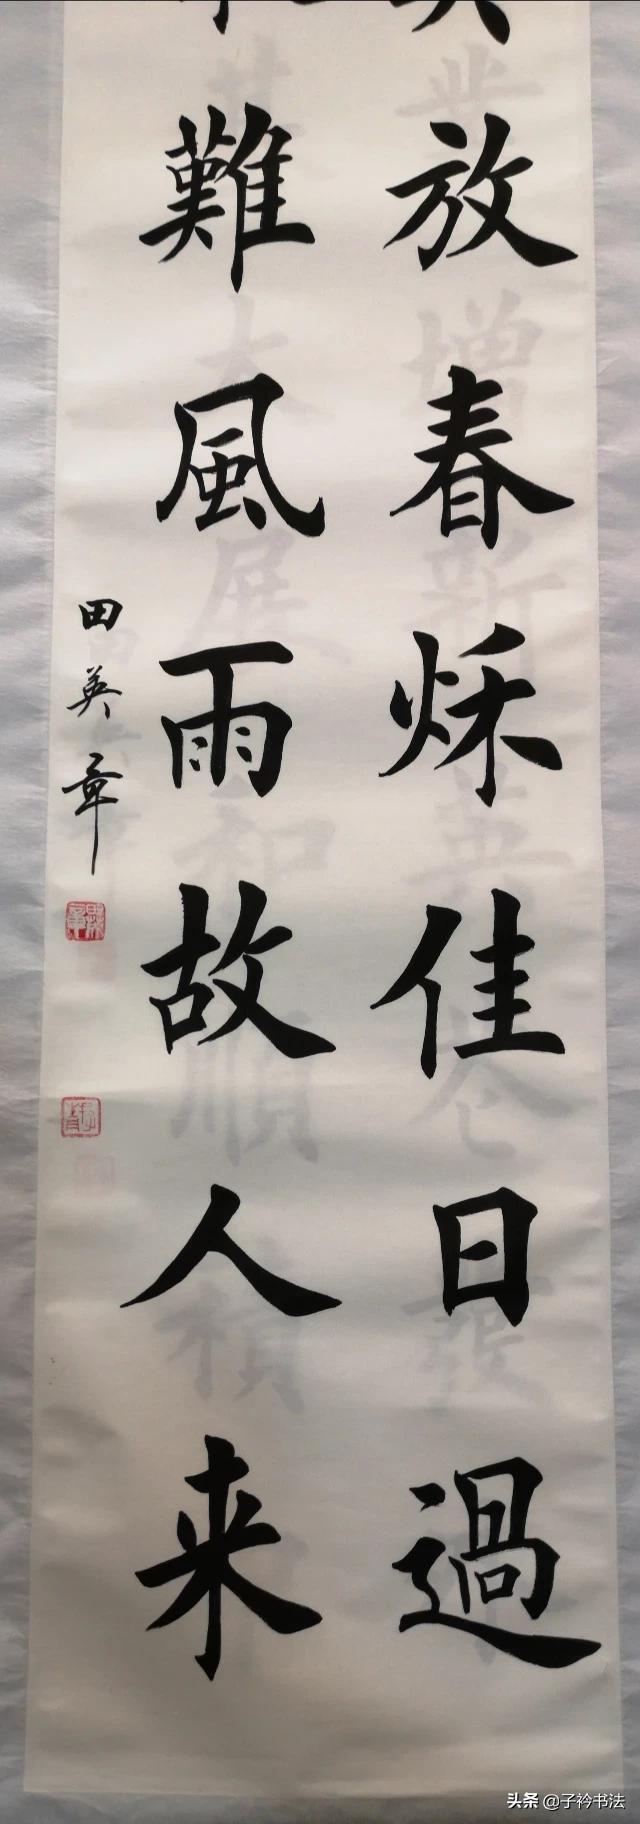 放春秌佳日過
難風雨故人来
田英章
头条 @子衿书法